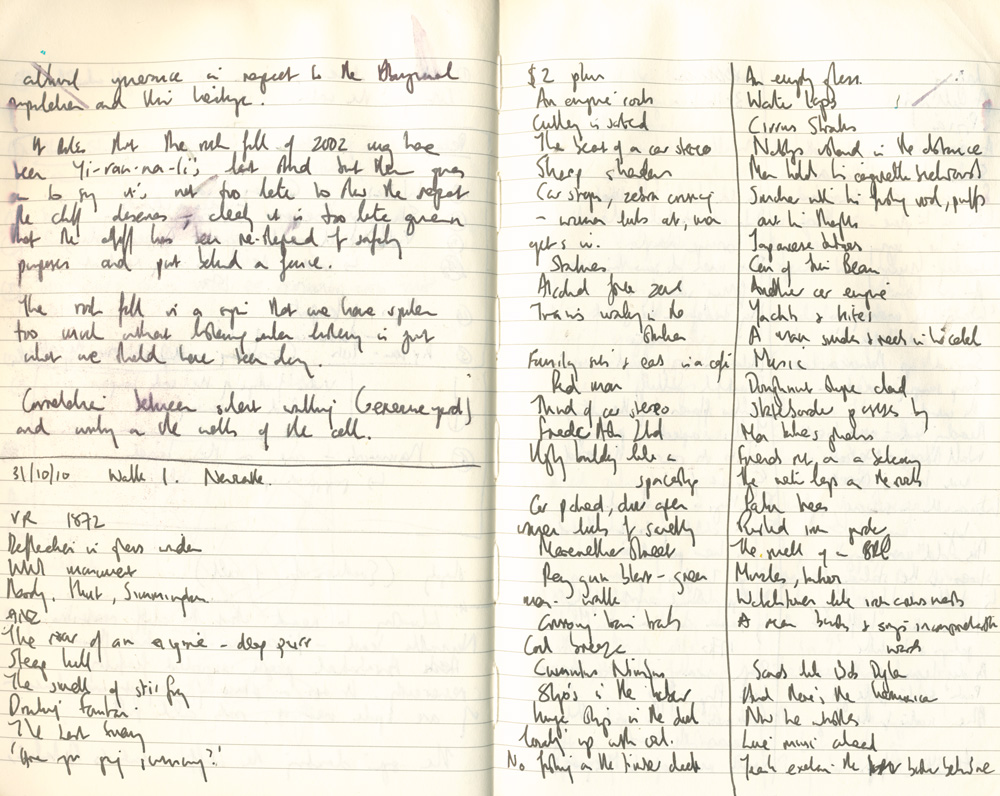 cultural ignorance in respect to the Aboriginal
population and their heritage.
It notes that the rock fall of 2002 may have
been Yi-ran-na-li's last stand but then goes
on to say it's not too late to show the respect
the cliff deserves - clearly it is too late given
that the cliff has been re-shaped for safety
purposes and put behind a fence.
The rock fall is a sign that we have spoken
too much without listening when listening is just
what we should have been doing.
Correlation between silent walking (exercise yard)
and writing on the walls of the cell.
31/10/10 Walk 1. Newcastle.
VR 1872
Reflection in glass window
WWI monument
Ready, Hunt,
ANZ
The roar of an engine - deep purr
Steep hill
The smell of stir fry
Drinking fountain
The
'Are you going swimming?'
$2 plus
An engine roars
Cutlery is sorted
The beat of a car stereo
Sharp shadow
Car stops, zebra crossing
- woman looks out, man
gets in.
Statues
Alcohol free zone
Trains waiting in the
station
Family sits & eats in a café
Red man
Thud of car stereo
Frederick Ash Ltd
Ugly building like a
spaceship
Car parked, door open
woman looks for something
Merewether Street
Ray gun blast - green
man - walk
Crossing train tracks
Cool breeze
Cumulus Nimbus
Ships in the harbour
Huge ship in the dock
loading up with coal.
No fishing on the timber deck
An empty glass.
Water laps
Cirrus Stratus
Nobbys island in the distance
Man holds his cigarette backwards
Another with his fishing rod, puffs
out his
Japanese
Can of Jim Beam
Another car engine
Yachts & kites
A man smokes & reads in his
Music
Doughnut shape cloud
Skateboarder passes by
Man takes photos
Friends sit on a balcony
The water laps on the rocks
Palm trees
Rusted iron girder
The smell of a BBQ
Muscles, tattoos
Watchtower like iron crows nests
A man barks & sings incomprehensible
words
Sounds like Bob Dylan
And there's the harmonica
Now he whistles
Live music ahead
explain the better